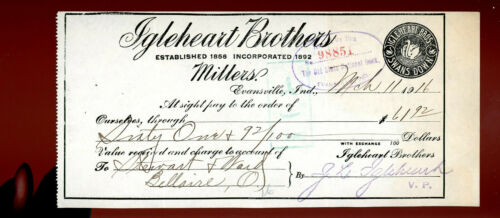 Igleheart Brothers
ESTABLISHED 1856 INCORPORATED 1892
Millers.
No. 98851
The Old State National Bank,
IGLEHEART BROS
SWANS DOWN
Evansville, Ind., Mch 11 1916
At sight pay to the order of
$61 92
Ourselves, through
Sixty One & 92/100 Dollars
WITH EXCHANGE 100
Value received and charge to account of Igleheart Brothers
To Stewart & Ward
Bellaire, O.
By J L Igleheart
V. P.